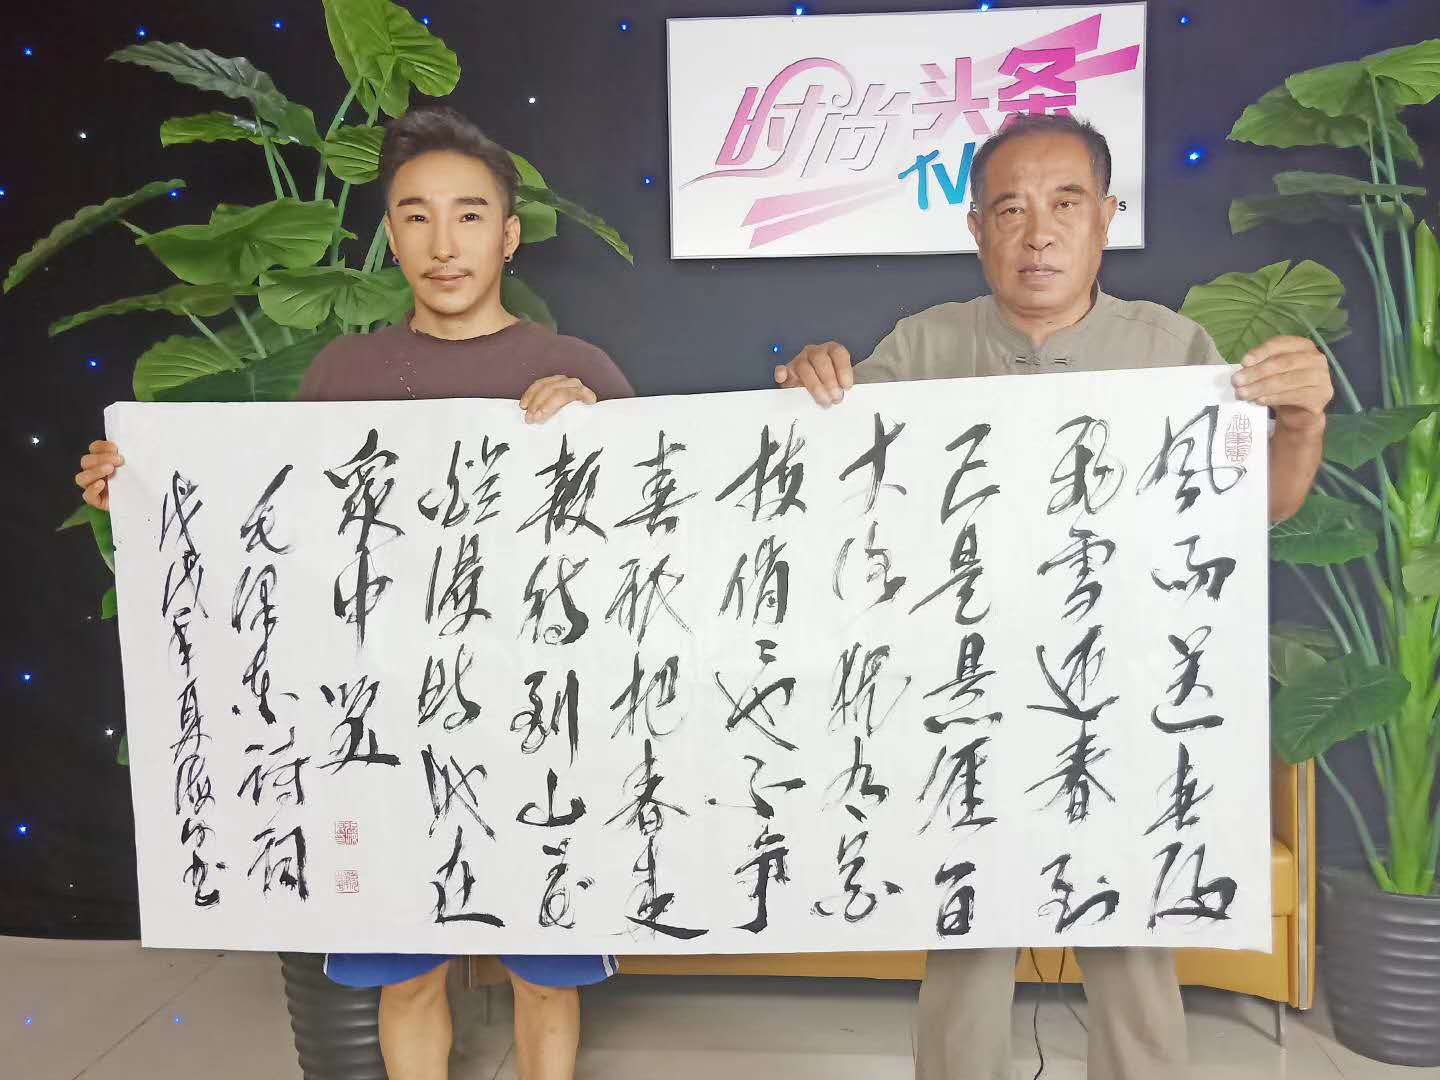 时尚头条
TV
风雨送春归
飛雪迎春到
已是悬崖百
丈冰犹有花
枝俏々也不争
春祇把春来
報待到山花
爛漫时她在
叢中笑
毛泽东诗词
戊戌年夏海书